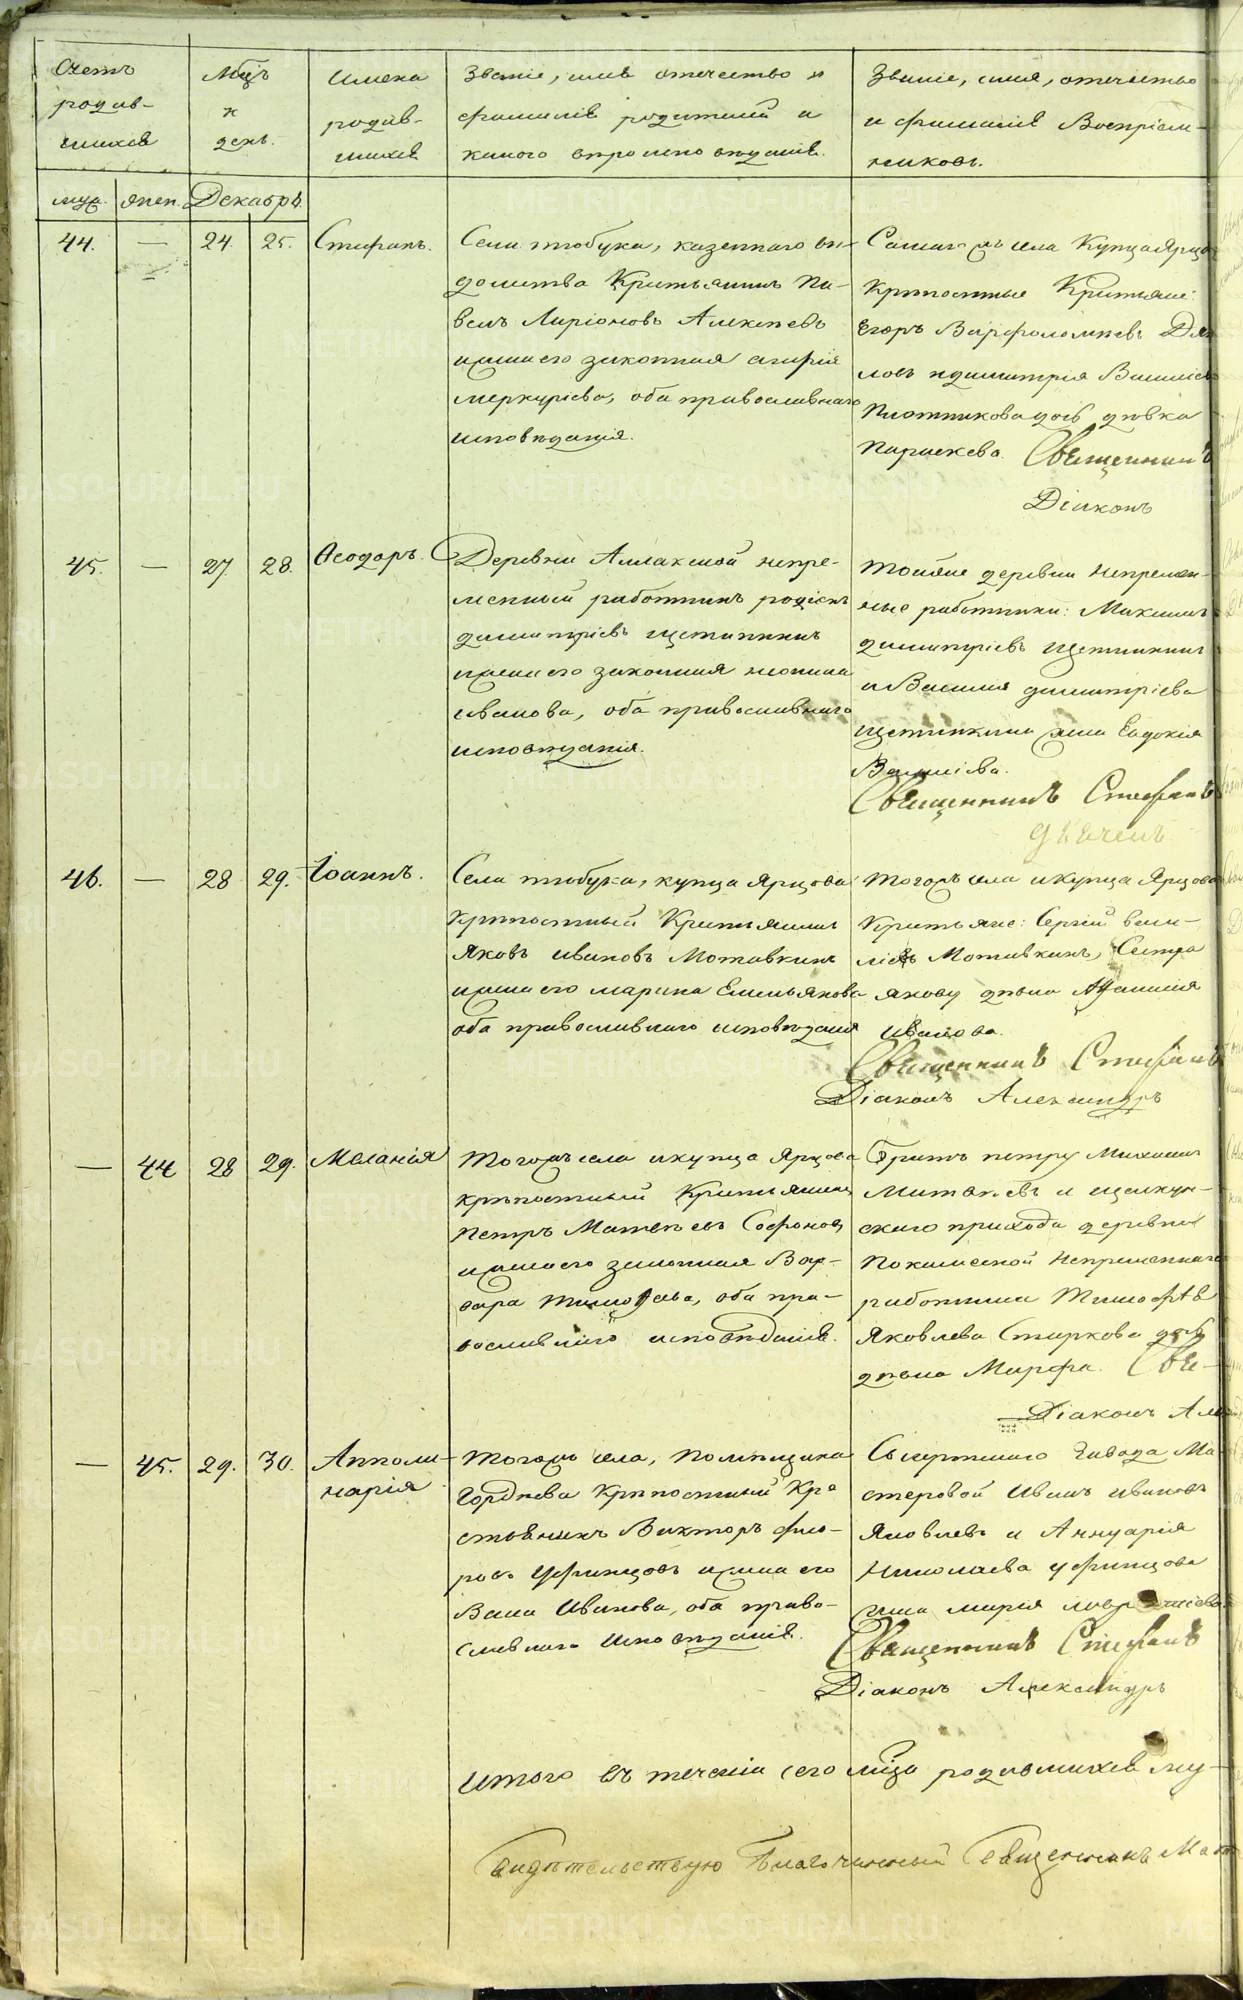 Счетъ родив-шихся
Мцъ и день.
Имена родив-шихся
Званіе, имя отечество и фамилія родителей и какого вѣроисповѣданія.
Званіе, имя, отечество и фамилія Воспріем-никовъ.
муж. жен. Декабрь
44. — 24. 25. Стефанъ.
Села казеннаго вѣ-
домства Крестьянинъ Па-
велъ Ларіоновъ Алексѣевъ
и жена его законная Агафія
Меркурьева, оба православнаго
исповѣданія.
Самаго села Купца Ярцова
Крѣпостные Крестьяне:
Егоръ Варфоломѣевъ
и Димитрія Васильева
Плотникова дочь дѣвка
Параскева. Священникъ
Діаконъ
45. — 27. 28. Ѳеодоръ.
Деревни непре-
менный работникъ
Димитріевъ Щетинкинъ
и жена его законная
Иванова, оба православнаго
исповѣданія.
Тойже деревни Непремен-
ные работники: Максимъ
Димитріевъ Щетинкинъ
и Василія Димитріева
Щетинкина жена Евдокія
Васильева.
Священникъ Стефанъ
46. — 28 29. Іоаннъ.
Села купца Ярцова
Крѣпостный Крестьянинъ
Яковъ Ивановъ Мотавкинъ
и жена его Марина Емельянова
оба православнаго исповѣданія
Тогожъ села и Купца Ярцова
Крестьяне: Сергій Васи-
ліевъ Мотавкинъ, Сестра
Якову дѣвка Афанасія
Иванова.
Священникъ Стефанъ
Діаконъ Александръ
— 44 28 29. Меланія
Тогожъ села и купца Ярцова
крѣпостный Крестьянинъ
Петръ Матвѣевъ Софоновъ
и жена его законная Вар-
вара Тимоѳеева, оба пра-
вославнаго исповѣданія.
Братъ Петру Михаилъ
Матвѣевъ и Щелкун-
скаго прихода деревни
Непременнаго
работника Тимофѣя
Яковлева Старкова дочь
дѣвка Марфа. Свя-
Діаконъ Але
— 45. 29. 30. Апполи-
нарія
Тогожъ села, Помѣщика
Гордѣева Крѣпостный Кре
стьянинъ Викторъ Фло-
ровъ Уфинцовъ и жена его
Васса Иванова, оба право-
славнаго Исповѣданія.
Сысертскаго Завода Ма-
стеровой Иванъ Ивановъ
Яковлевъ и Аннуарія
Николаева Уфинцова
жена Марія
Священникъ Стефанъ
Діаконъ Александръ
Итого въ теченіи сего мца родившихся му-
Свидѣтельствую Благочинный Священникъ